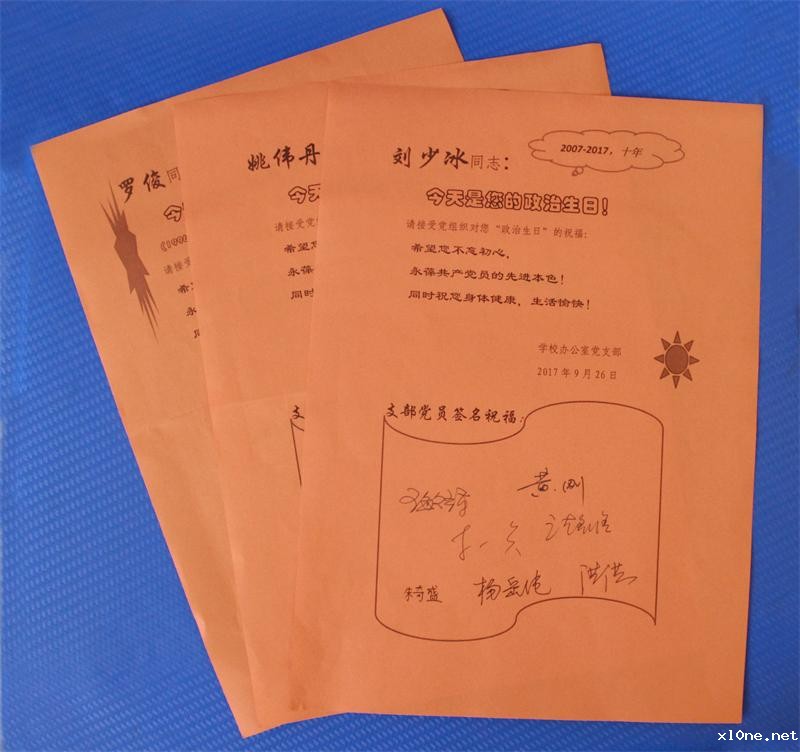 罗俊同
今
请接受
希
永
同
姚伟丹
今天
请接受党
希望您
永葆共
同时祝
支
刘少冰同志：
2007-2017，十年
今天是您的政治生日！
请接受党组织对您“政治生日”的祝福：
希望您不忘初心，
永葆共产党员的先进本色！
同时祝您身体健康，生活愉快！
学校办公室党支部
2017年9月26日
支部党员签名祝福：
黄刚
朱奇盛
杨岳
x1one.net